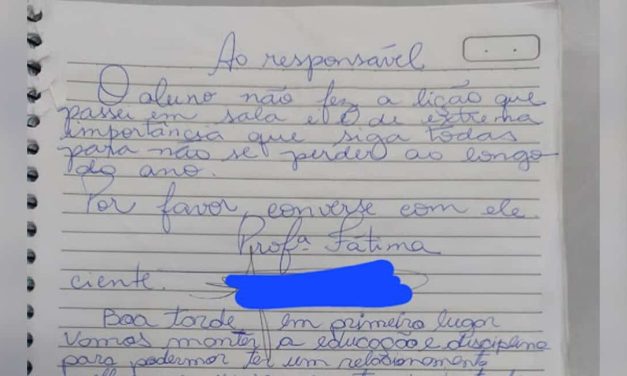 Ao responsável
O aluno não fez a lição que
passei em sala e é de estrema
importância que siga todas
para não se perder ao longo
do ano.
Por favor, converse com ele.
Profª Fátima
ciente:
Boa tarde, em primeiro lugar
Vamos manter a educação e disciplina
para podermor ter um relacionamento